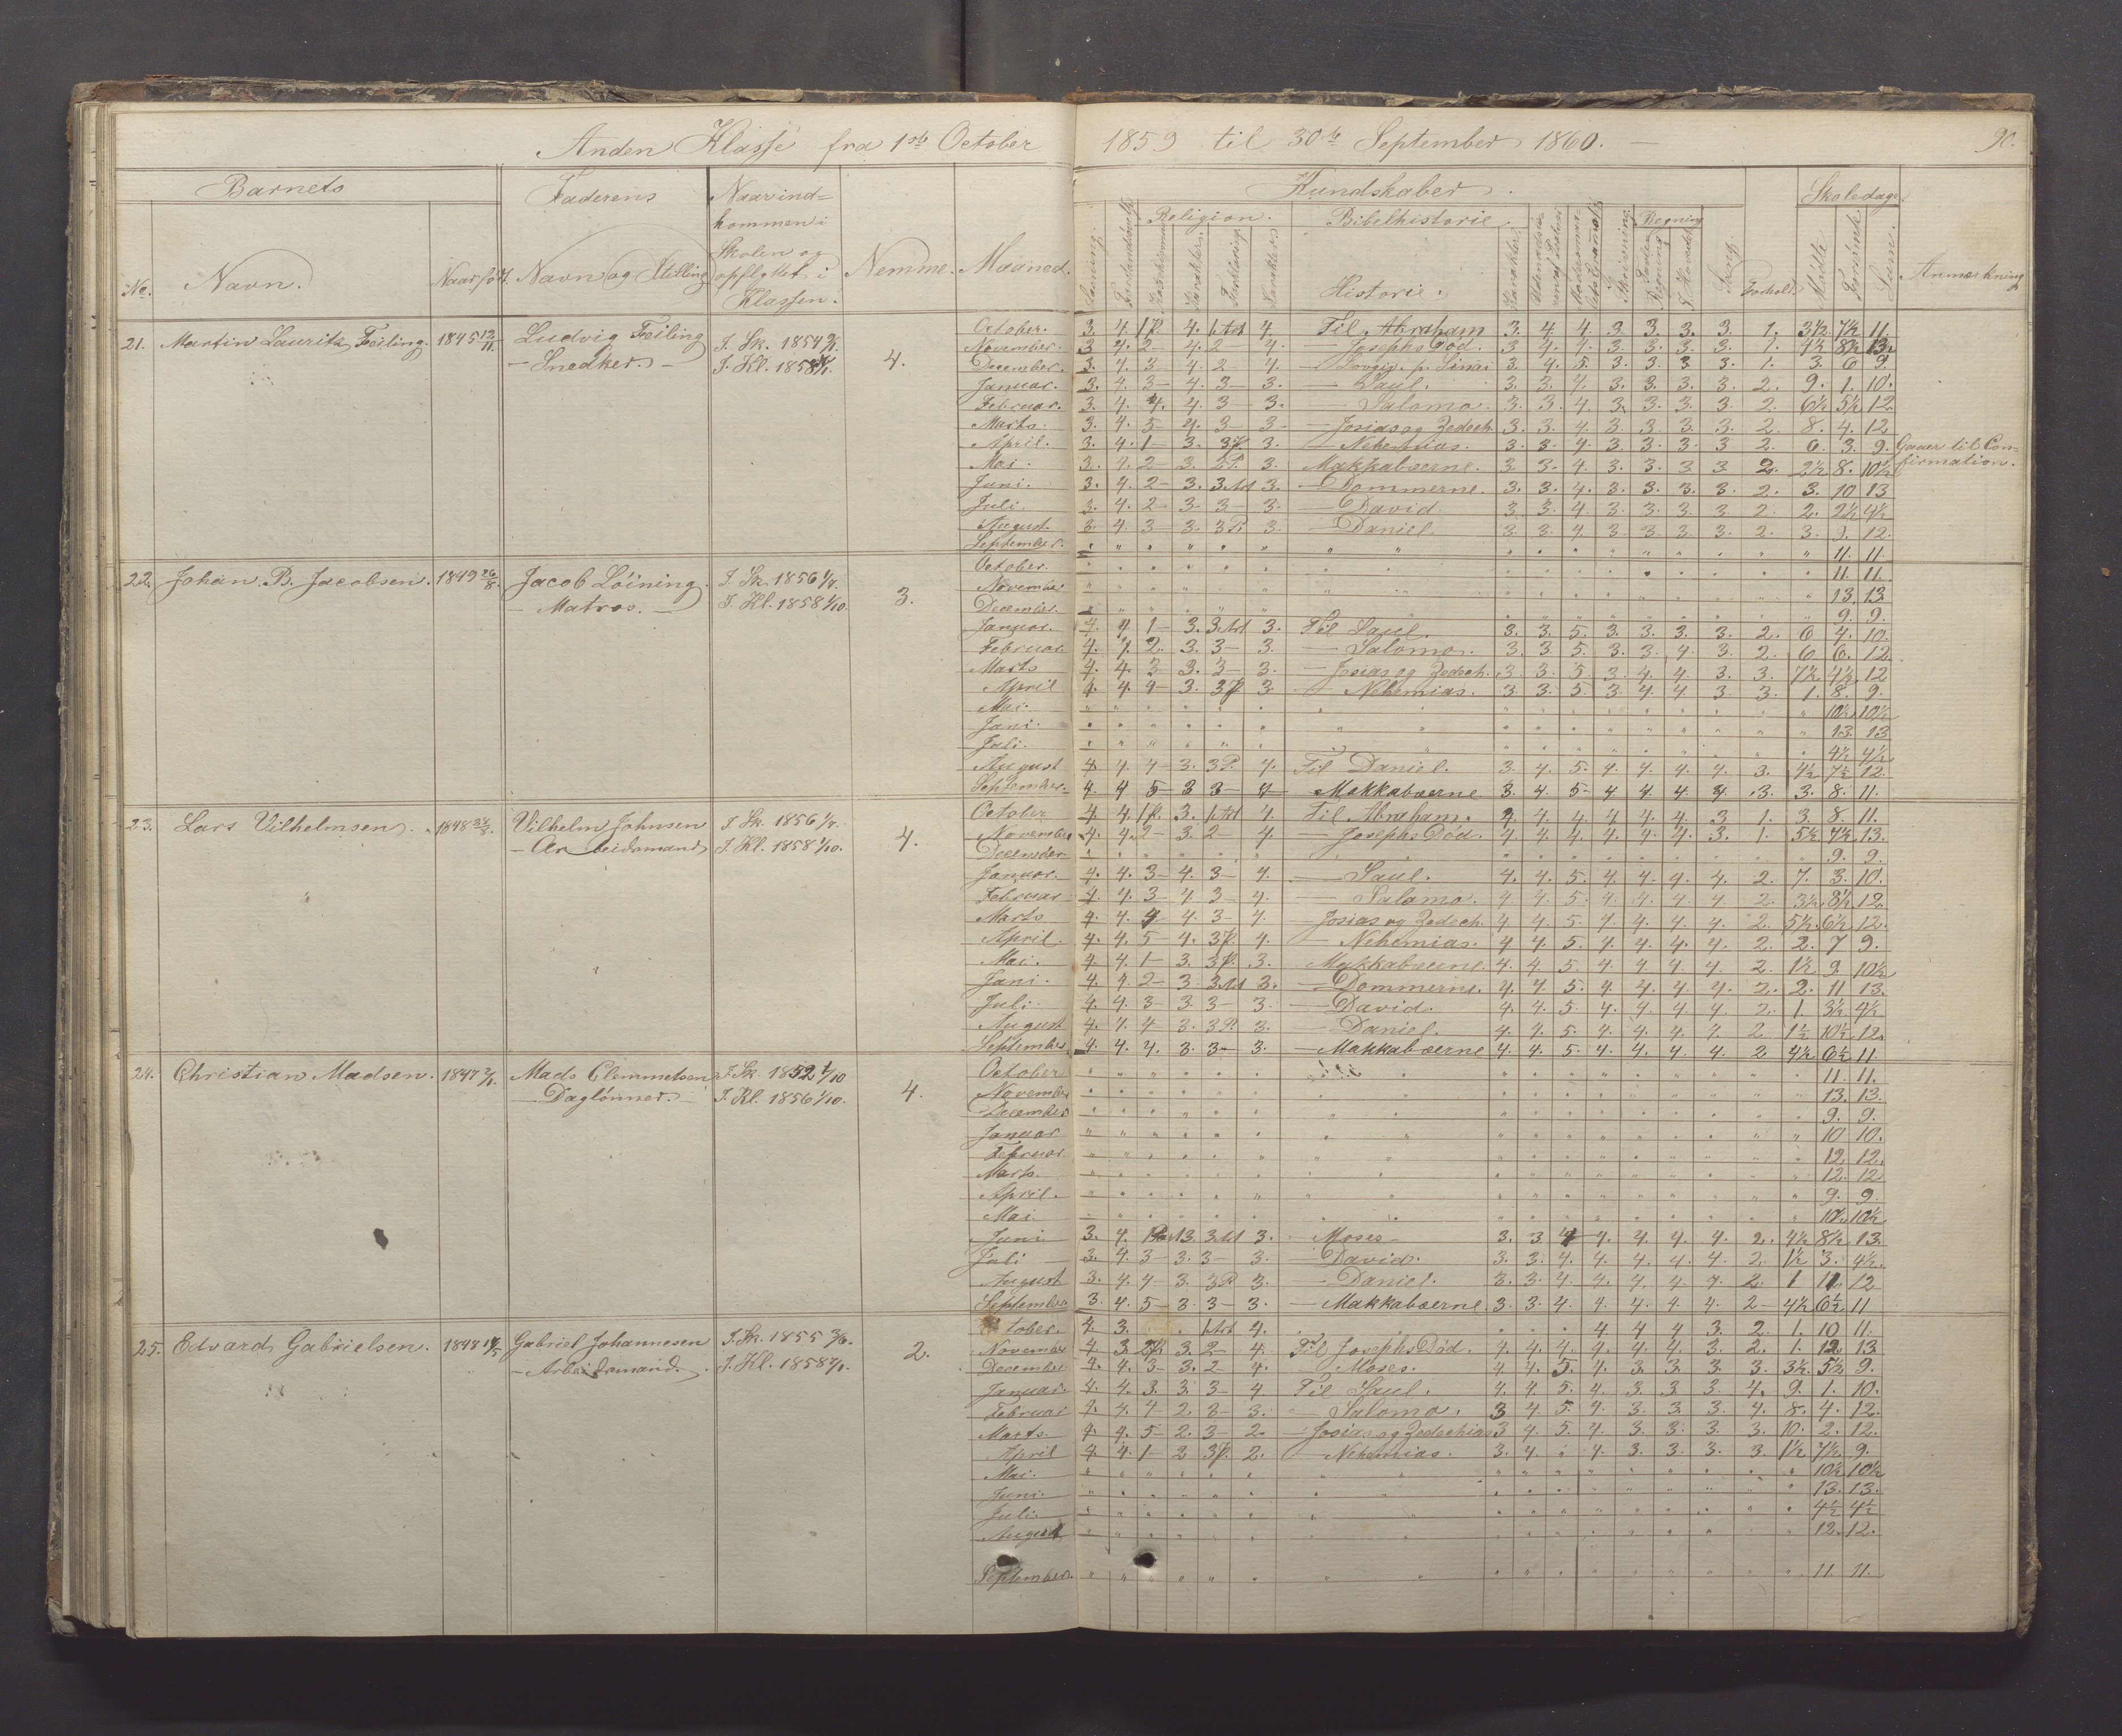 Anden Klasse fra 1ste October 1859 til 30te September 1860. 90.
Barnets Faderens Naar ind-
kommen i
Skolen og
opflyttet i
Klassen. Nemme. Maaned. Kundskaber. Skoledage.
Religion. Bibelhistorie. Regning
No. Navn. Naar født. Navn og Stilling Læsning. Historie. Forhold. Mødte. Forsømte. Sum. Anmærkning
21. Martin Lauritz Feiling. 1845 Ludvig Feiling
- Snedker. -
I. Sk. 1854
I. Kl. 1858
4.
October. 3. 4. 4. 4. Til Abraham 3. 4. 4. 3. 3. 3. 3. 1. 3½ 7½ 11.
November. 3 4. 2 - 4. 2 - 4. - Josephs Død. 3 4. 4. 3. 3. 3. 3. 1. 4½ 8½ 13.
December. 3. 4. 3 - 4. 2 - 4. - Lovgiv. p. Sinai 3. 4. 5. 3. 3. 3 3. 1. 3. 6 9.
Januar. 3. 4. 3 - 4. 3 - 3. - Saul. 3. 3. 4. 3. 3. 3. 3. 2. 9. 1. 10.
Februar. 3. 4. 4. 4. 3 - 3. - Salomo. 3. 3. 4. 3. 3. 3. 3. 2. 6½ 5½ 12.
Marts. 3. 4. 5 - 4. 3 - 3 - Josias og Zedech. 3. 3. 4. 3. 3. 3. 3. 2. 8. 4. 12
April. 3. 4. 1 - 3. 3. - Nehemias. 3. 3. 4. 3. 3. 3. 3 2. 6. 3. 9. Gaaer til Con-
firmation.
Mai. 3. 4. 2 - 3. 2P. 3. Makkabæerne. 3 3. 4. 3. 3. 3 3 2. 2½ 8. 10½
Juni. 3. 4. 2 - 3. 3. - Dommerne. 3. 3. 4. 3. 3. 3. 3. 2. 3. 10 13
Juli. 3. 4. 2 - 3 - 3 - 3. - David. 3. 3. 4. 3. 3. 3. 3 2. 2. 2½ 4½
August. 3. 4. 3 - 3. 3P. 3. - Daniel. 3. 3. 4. 3. 3. 3. 3. 2. 3. 9. 12.
September. " " " " " " " " " " " " " " " " " 11. 11.
22. Johan B. Jacobsen. 1849 26/8. Jacob Löining.
- Matros. -
I. Sk. 1856
I. Kl. 1858 1/10.
3.
October. 11. 11.
November 13. 13.
December. 9. 9.
Januar. 4. 4. 1 - 3. 3. Til Saul. 3. 3. 5. 3. 3. 3. 3. 2. 6 4. 10.
Februar 4. 4. 2. 3. 3 - 3. - Salomo. 3. 3 5. 3. 3. 4. 3. 2. 6 6. 12
Marts 4. 4. 3 3. 3 - 3. - Josias og Zedech. 3. 3. 5. 3. 4. 4. 3. 3. 7½ 4½ 12
April 4. 4. 4 - 3. 3. - Nehemias. 3. 3. 5. 3. 4. 4. 3 3. 1. 8. 9.
Mai. 10½ 10½
Juni. 13. 13
Juli. 4½ 4½
August 4. 4. 4 - 3. 3P. 4. Til Daniel. 3. 4. 5. 4. 4. 4. 4. 3. 4½ 7½ 12.
September. 4. 4 5 - 3 3 - 4 - Makkabæerne 3. 4. 5 - 4 4 4 4. 3. 3. 8. 11.
23. Lars Vilhelmsen. 1848 Vilhelm Johnsen
- Arbeidsmand
I. Sk. 1856
I. Kl. 1858 1/10.
4.
October 4. 4. 3. 4. Til Abraham. 4. 4. 4. 4. 4. 4. 3 1. 3. 8. 11.
November 4. 4. 2 - 3. 2 - 4. - Josephs Død. 4. 4. 4. 4. 4. 4. 3. 1. 5½ 7½ 13.
December 9. 9.
Januar. 4. 4. 3 - 4. 3 - 4. - Saul. 4. 4. 5. 4. 4. 4. 4. 2. 7. 3. 10.
Februar 4. 4. 3 - 4. 3 - 4. - Salomo. 4. 4. 5. 4. 4. 4. 4. 2. 3½ 8½ 12.
Marts 4. 4. 4 - 4. 3 - 4. - Josias og Zedech. 4 4. 5. 4. 4. 4. 4. 2. 5½ 6½ 12.
April. 4. 4. 5 - 4. 4. - Nehemias. 4 4. 5. 4. 4. 4. 4. 2. 2. 7 9.
Mai. 4. 4. 1 - 3. 3. Makkabæerne. 4. 4. 5. 4. 4. 4. 4. 2. 1½ 9 10½
Juni. 4. 4. 2 - 3. 3. - Dommerne. 4. 4. 5. 4. 4. 4. 4. 2. 2. 11 13.
Juli 4. 4. 3 - 3 3 - 3. - David. 4. 4. 5. 4. 4. 4. 4. 2. 1. 3½ 4½
August 4. 4. 4 - 3. 3P. 3. - Daniel. 4. 4. 5. 4. 4. 4. 4. 2. 1½ 10½ 12.
September 4. 4. 4. 3. 3 - 3. - Makkabæerne 4. 4. 5. 4. 4. 4. 4. 2 4½ 6½ 11.
24. Christian Madsen. 1847 Mads Clemmetsen
- Daglønner. -
I. Sk. 1852 1/10
I. Kl. 1856 1/10.
4.
October 11. 11.
November 13. 13.
December 9. 9.
Januar 10 10.
Februar. 12. 12.
Marts. 12. 12.
April. 9. 9.
Mai. 10½ 10½
Juni 3. 4. 3. 3. - Moses 3. 3 4 4. 4. 4. 4. 2. 4½ 8½ 13.
Juli 3. 4. 3 - 3. 3 - 3. - David. 3. 3. 4. 4. 4. 4. 4. 2. 1½ 3. 4½.
August 3. 4. 4 - 3. 3P. 3. - Daniel. 3. 3. 4. 4. 4. 4. 4. 2. 1 11. 12
September 3. 4. 5 - 3. 3 - 3. - Makkabæerne. 3. 3. 4. 4. 4. 4. 4. 2 - 4½ 6½ 11
25. Edvard Gabrielsen. 1848 Gabriel Johannesen
- Arbeidsmand.
I. Sk. 1855
I. Kl. 1858
2.
October. 4. 3. 4. 4 4 4 3. 2. 1. 10 11.
November 4. 3 3. 2 - 4. Til Josephs Død. 4. 4. 4. 4. 4. 4. 3. 2. 1. 12 13
December 4. 4. 3 - 3. 2 - 4. Moses. 4. 4. 5. 4. 3. 3. 3. 3. 3½ 5½ 9.
Januar. 4. 4. 3. 3. 3 - 4 Til Saul. 4. 4. 5. 4. 3. 3. 3. 4. 9. 1. 10.
Februar 4. 4. 4 2. 3 - 3. - Salomo. 3 4 5. 4. 3. 3. 3. 4. 8. 4. 12.
Marts 4. 4. 5 - 2. 3 - 2. - Josias og Zedechias 3 4. 5. 4. 3. 3. 3. 3. 10. 2. 12.
April 4. 4. 1 - 2 2. - Nehemias. 3. 4. 4. 3. 3. 3. 3. 1½ 7½ 9.
Mai. 10½ 10½
Juni. 13. 13.
Juli. 4½ 4½
August 12. 12.
September. 11. 11.